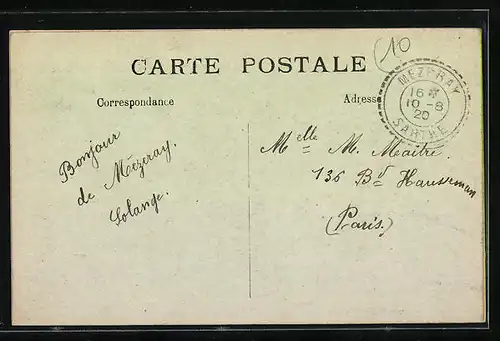 10
CARTE POSTALE
Correspondance
Adresse
MEZERAY
16 *
10 - 8
20
SARTHE
Bonjour
de Mézeray.
Solange.
Melle M. Maitre.
136 Bd Hausseman
(Paris.)